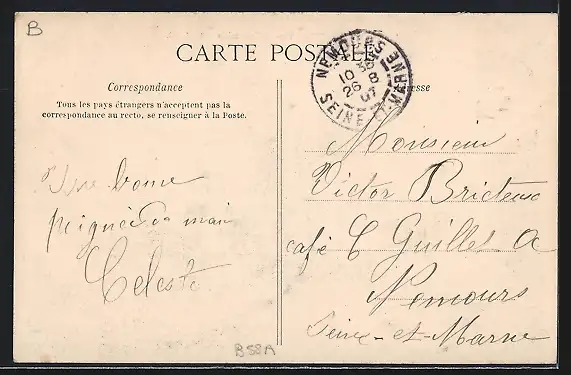 B
CARTE POSTALE
Correspondance
Tous les pays étrangers n'acceptent pas la
correspondance au recto, se renseigner à la Poste.
Une bonne
poignée de main
Celeste
NEMOURS
10
26 8
07
SEINE ET MARNE
Adresse
Monsieur
Victor
café Guillet
Nemours
Seine-et-Marne
B58A